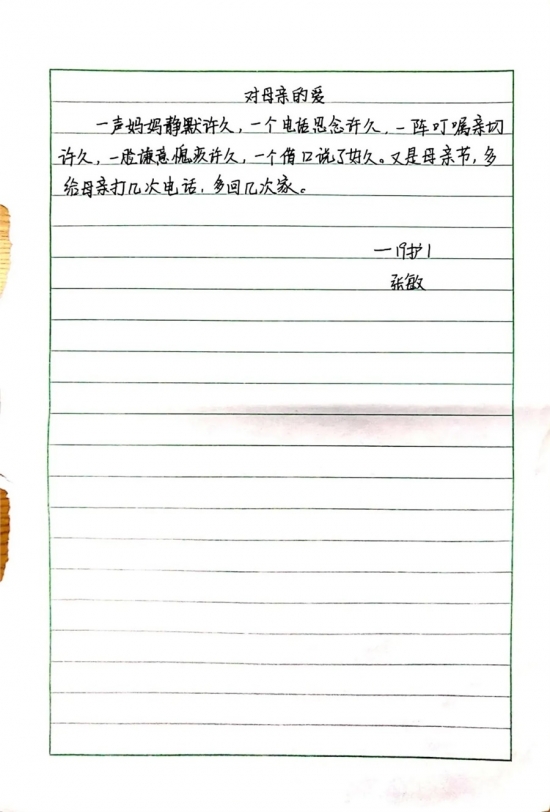 对母亲的爱
一声妈妈静默许久，一个电话思念许久，一阵叮嘱亲切
许久，一脸谦意愧疚许久，一个借口说了好久。又是母亲节，多
给母亲打几次电话，多回几次家。
一19护1
张敏